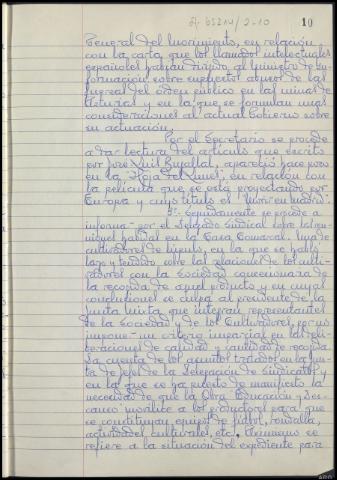 10
General del Movimiento, en relación
con la carta que los llamados intelectuales
españoles habían dirigido al Ministro de In-
formación sobre supuestos abusos de las
fuerzas del orden público en las minas de
Asturias y en la que se formulan unas
consideraciones al actual Gobierno sobre
su actuación.
Por el Secretario se procede
a dar lectura del artículo que escrito
por José Luis apareció hace poco
en la "Hoja del Lunes", en relación con
la película que se está proyectando por
Europa y cuyo título es "Morir en Madrid".
3º. Seguidamente se procede a
informar por el Delegado Sindical sobre las reu-
niones habidas en la Casa Comarcal, Unión de
cultivadores de lúpulo, en la que se habló
largo y tendido sobre las relaciones de los culti-
vadores con la Sociedad concesionaria de
la recogida de aquel producto y en cuyas
conclusiones se culpa al presidente de la
Junta mixta que integran representantes
de la Sociedad y de los Cultivadores, por no
imponer un criterio imparcial en las deli-
beraciones de calidad y cantidad de recogida.
Da cuenta de los asuntos tratados en la Jun-
ta de Jefes de la Delegación de Sindicatos y
en la que se ha puesto de manifiesto la
necesidad de que la Obra Educación y Des-
canso movilice a los productores para que
se constituyan equipos de fútbol, rondalla,
actividades culturales, etc. Asimismo se
refiere a la situación del expediente para